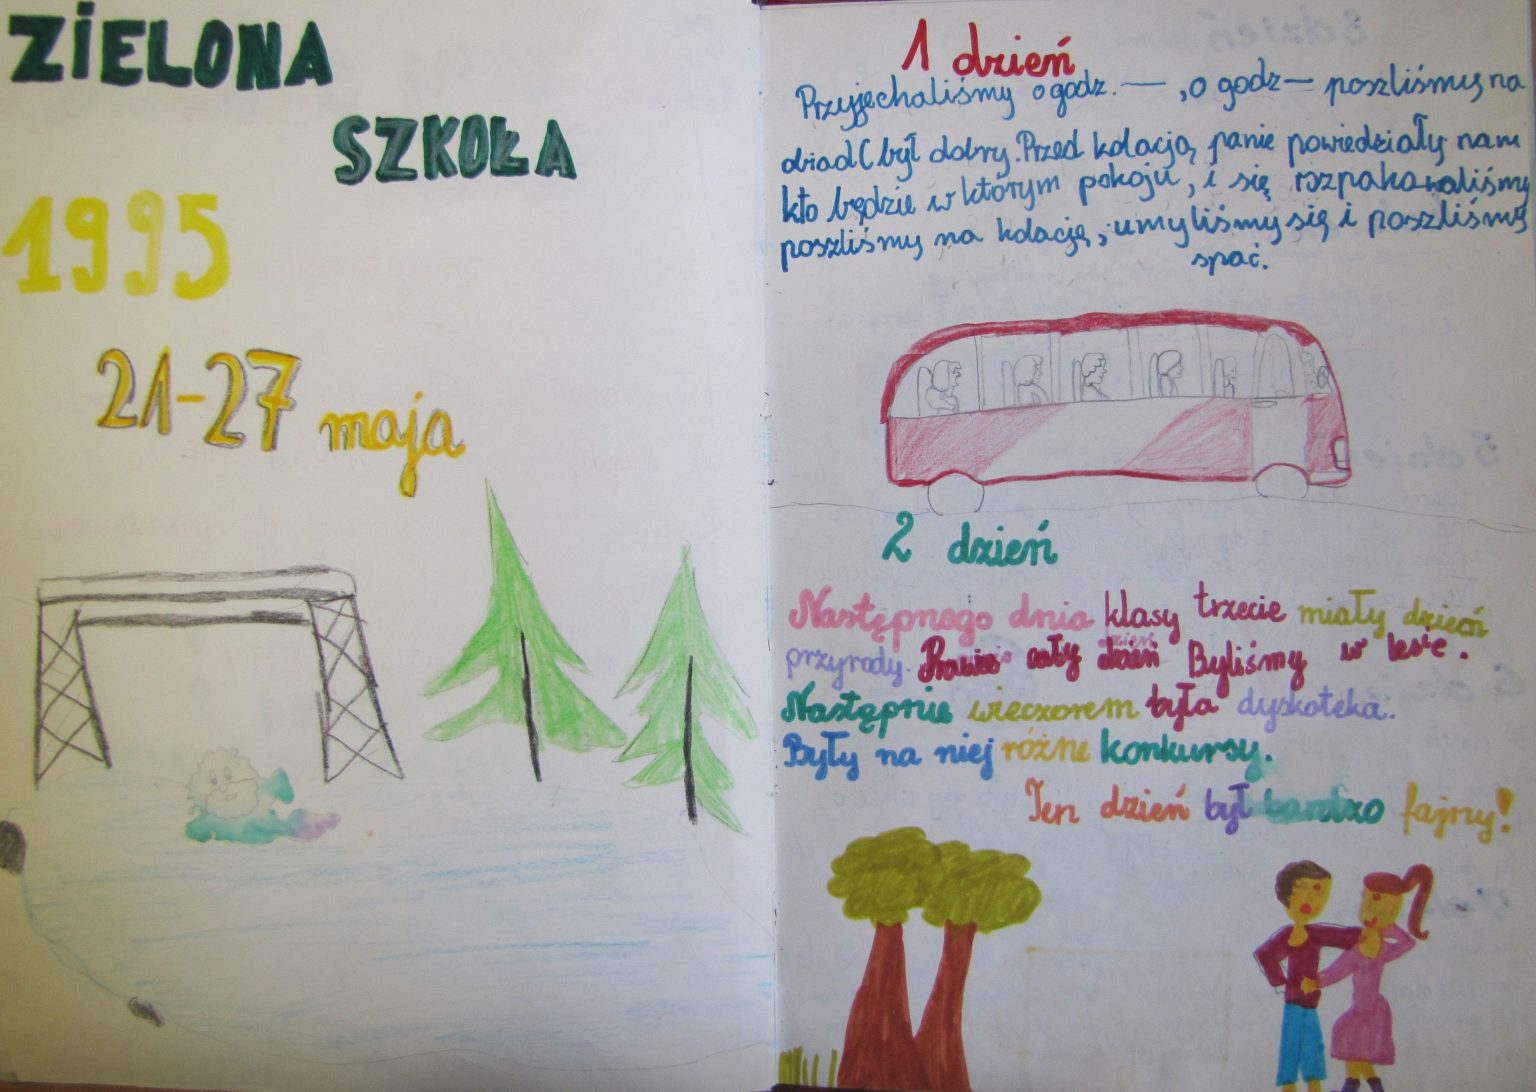 ZIELONA
SZKOŁA
1995
21-27 maja
1 dzień
Przyjechaliśmy o godz. — , o godz — poszliśmy na
obiad ( był dobry. Przed kolacją, panie powiedziały nam
kto będzie w którym pokoju, i się rozpakowaliśmy
poszliśmy na kolację, umyliśmy się i poszliśmy
spać.
2 dzień
Następnego dnia klasy trzecie miały dzień
przyrody. Prawie cały dzień Byliśmy w lesie.
Następnie wieczorem była dyskoteka.
Były na niej różne konkursy.
Ten dzień był bardzo fajny!